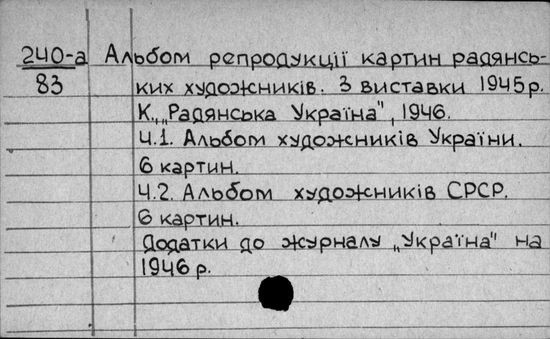 240-а Альбом репродукції картин радянсь-
83 ких художників. З виставки 1945р.
К., „Радянська Україна", 1946.
Ч.1. Альбом художників України.
6 картин.
Ч.2. Альбом художників СРСР.
6 картин.
Додатки до журналу „Україна" на
1946 р.